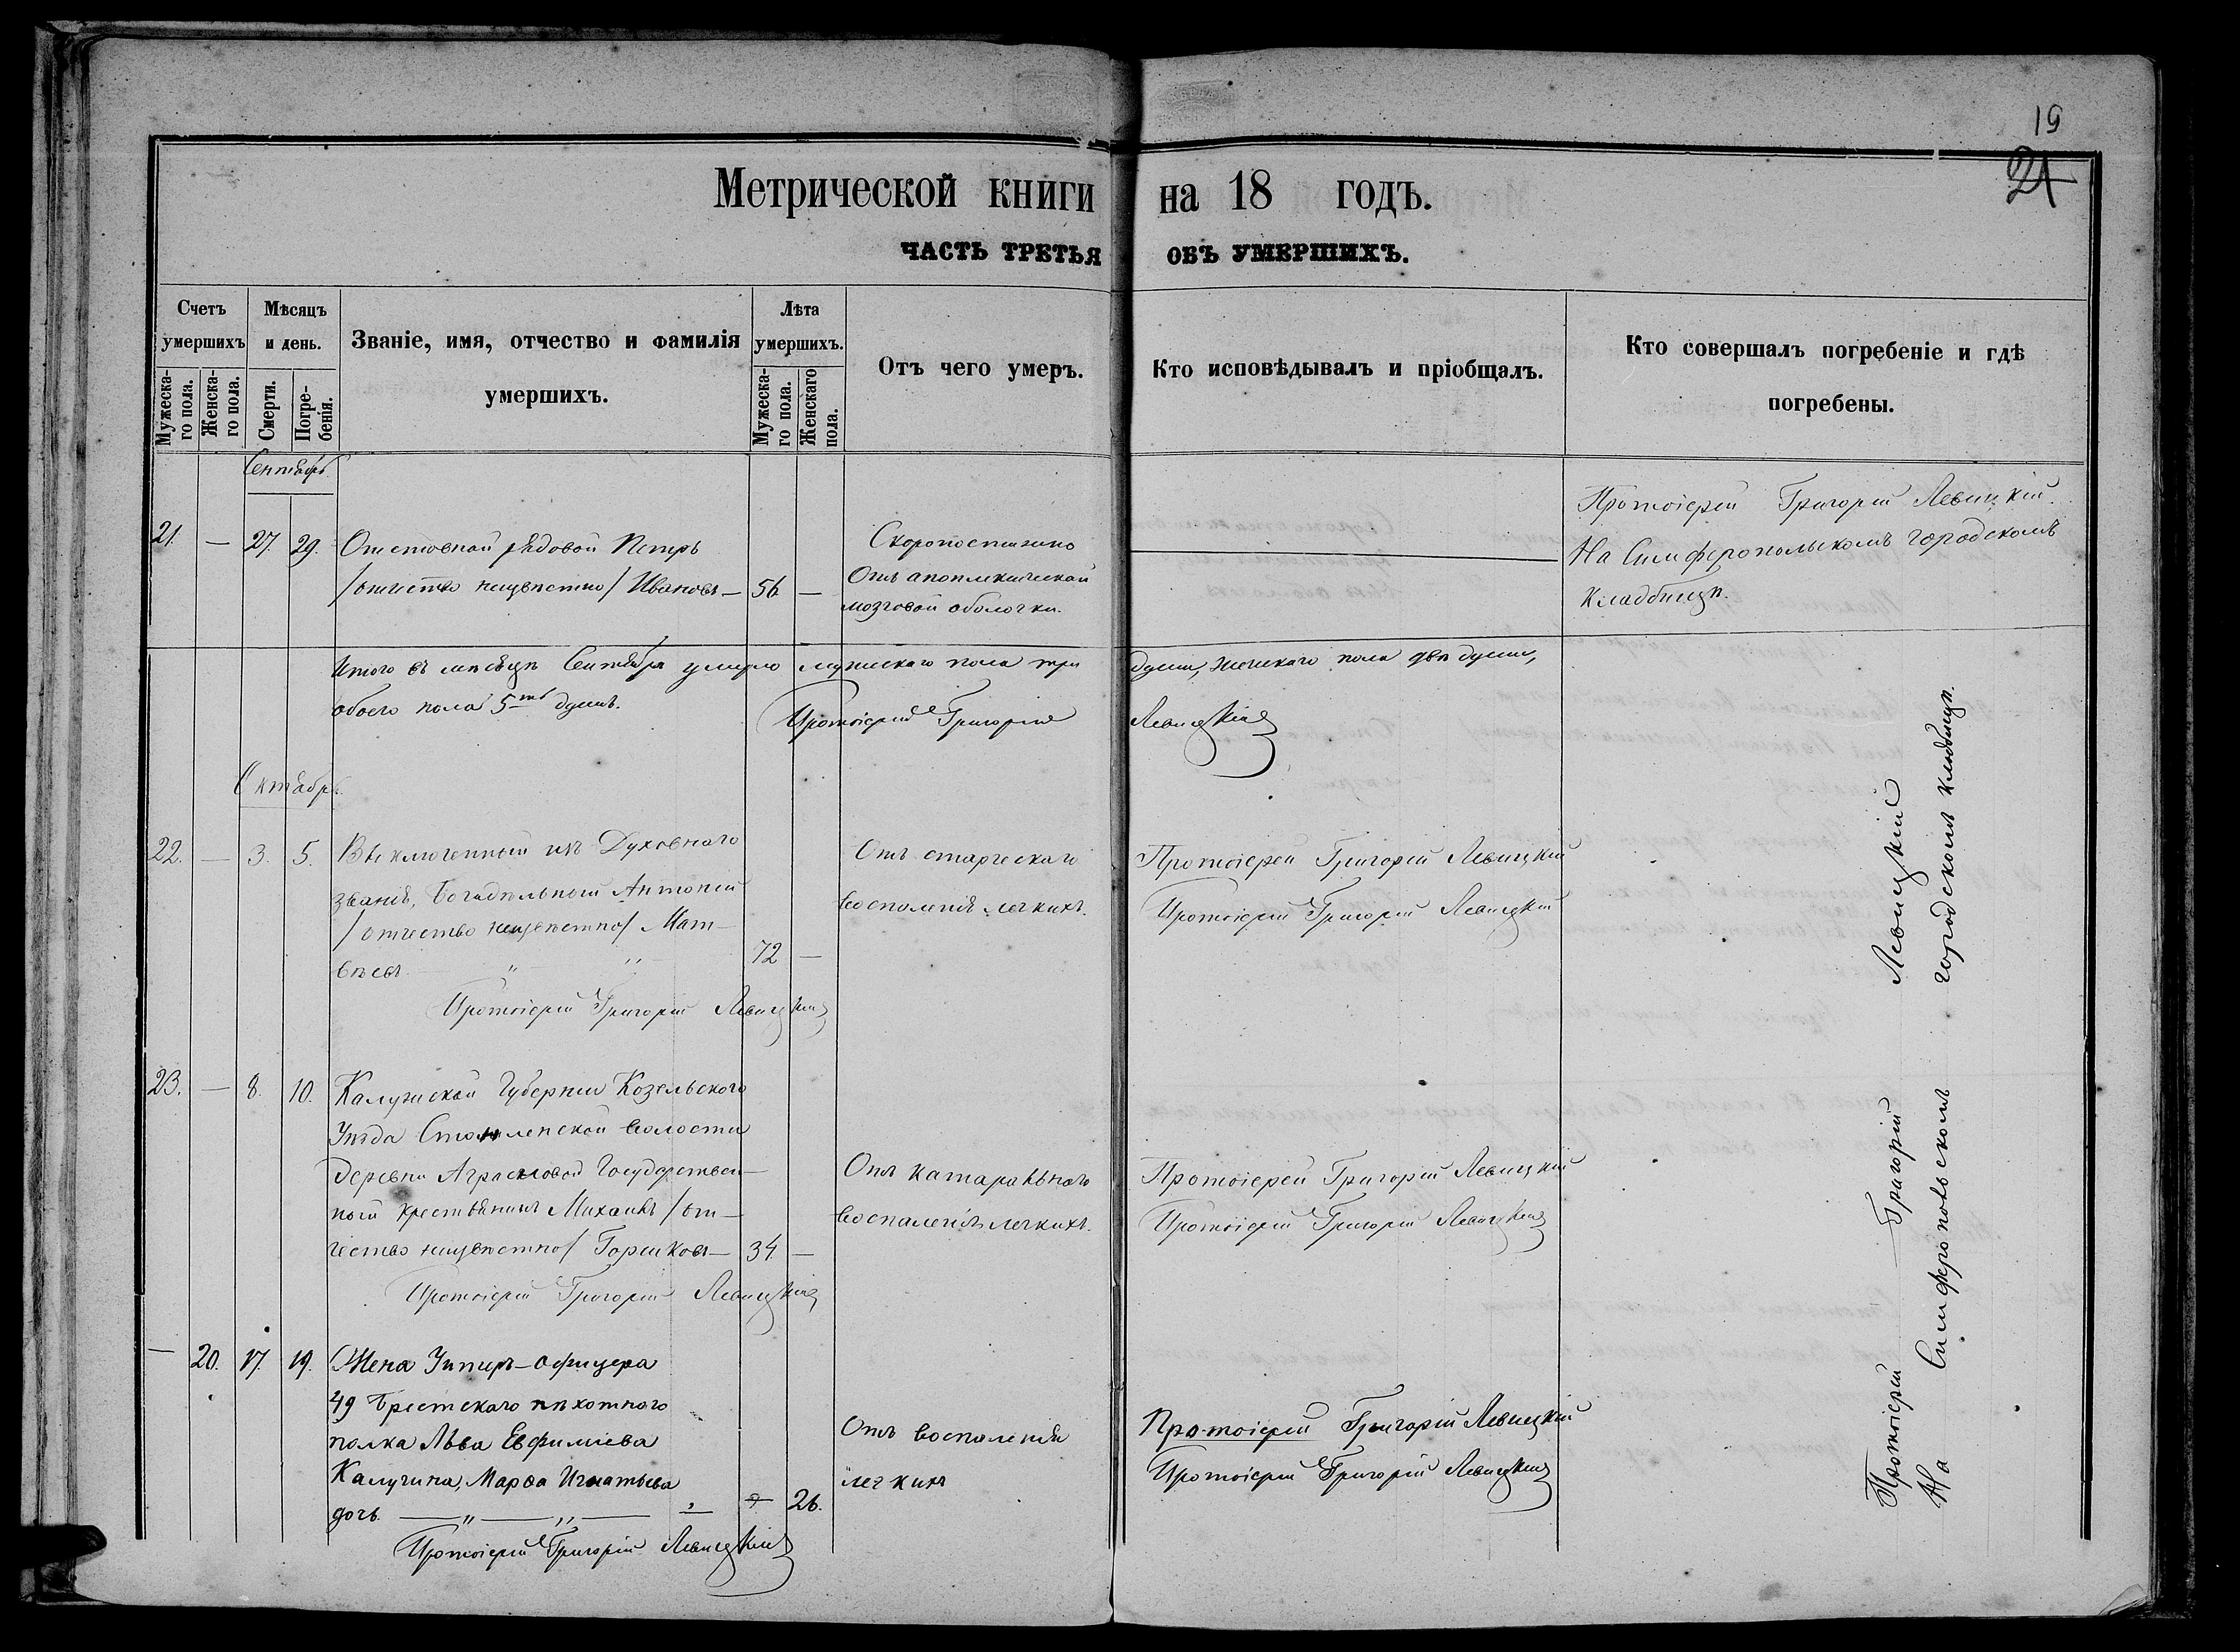 19
21
Метрической книги на 18 годъ.
ЧАСТЬ ТРЕТЬЯ ОБЪ УМЕРШИХЪ.
Счетъ умершихъ
Мужеска-го пола.
Женска-го пола.
Мѣсяцъ и день.
Смерти.
Погре-бенія.
Званіе, имя, отчество и фамилія умершихъ.
Лѣта умершихъ.
Мужеска-го пола.
Женскаго пола.
Отъ чего умеръ.
Кто исповѣдывалъ и пріобщалъ.
Кто совершалъ погребеніе и гдѣ погребены.
Сентябрь
21. — 27. 29. Отставной рядовой Петръ
/отчество неизвѣстно/ Ивановъ — 56 —
Скоропостижно
Отъ апоплекической
мозговой оболочки.
Протоіерей Григорій Левицкій.
На Симферопольскомъ городскомъ
кладбищѣ.
Итого въ мѣсяцѣ Сентябрѣ умерло мужескаго пола три души, женскаго пола двѣ души,
обоего пола 5ть душъ.
Протоіерей Григорій Левицкій
Октябрь
22. — 3. 5. Выключенный изъ Духовнаго
званія, Богадѣльный Антоній
/отчество неизвѣстно/ Мат-
вѣевъ — " — " 72 —
Отъ старческаго
воспаленія легкихъ.
Протоіерей Григорій Левицкій
Протоіерей Григорій Левицкій
Протоіерей Григорій Левицкій
23. — 8. 10. Калужской Губерніи Козельскаго
Уѣзда волости
деревни Государствен-
ный крестьянинъ Михаилъ /от-
чество неизвѣстно/ Горшковъ — 34 —
Отъ катаральнаго
воспаленія легкихъ.
Протоіерей Григорій Левицкій
Протоіерей Григорій Левицкій
Протоіерей Григорій Левицкій
— 20. 17. 19. Жена Унтеръ-офицера
49 Брестскаго пѣхотнаго
полка Льва Евфиміева
Калугина, Марѳа Игнатьева
дочь. — " — " — 26.
Отъ воспаленія
легкихъ
Протоіерей Григорій Левицкій
Протоіерей Григорій Левицкій
Протоіерей Григорій Левицкій
Протоіерей Григорій Левицкій
На Симферопольскомъ городскомъ кладбищѣ.